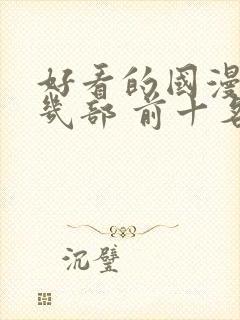 好看的國漫
幾部 前十名
沉璧